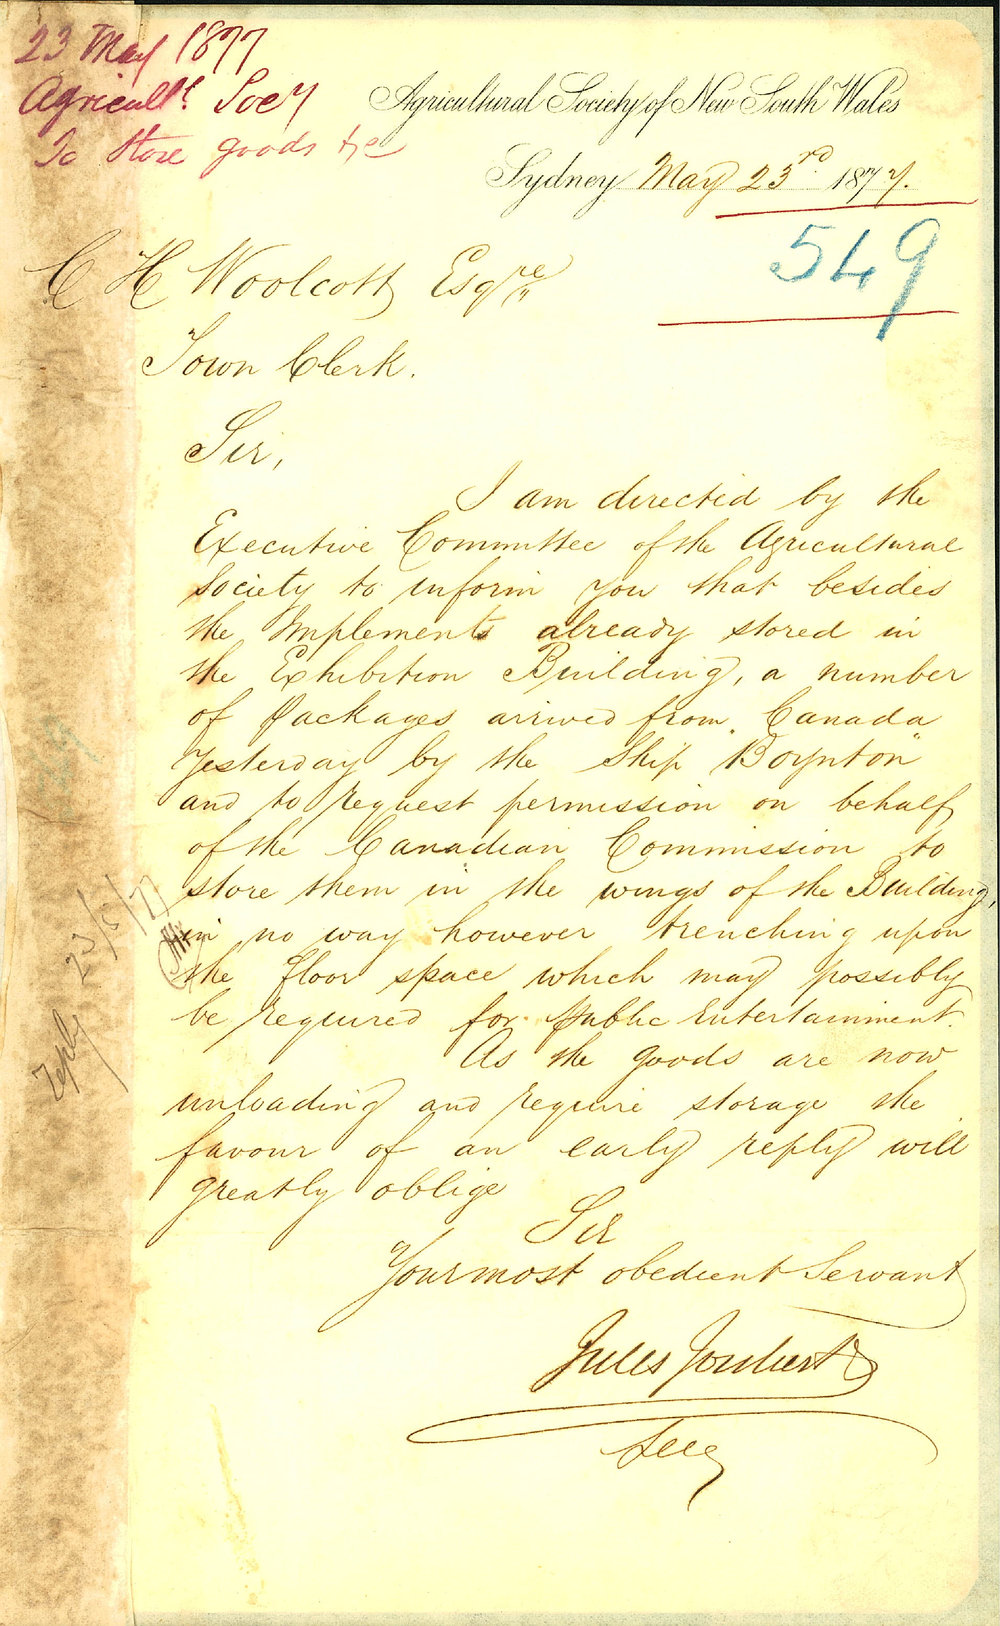 23 May 1877
Agricultl Socy
To Store goods &c
Agricultural Society of New South Wales
Sydney May 23rd 1877.
549
C H Woolcott Esqre
Town Clerk.
Sir,
I am directed by the
Executive Committee of the Agricultural
Society to inform you that besides
the Implements already stored in
the Exhibition Building, a number
of Packages arrived from Canada
yesterday by the Ship "Boynton"
and to request permission on behalf
of the Canadian Commission to
store them in the wings of the Building,
in no way however trenching upon
the floor space which may possibly
be required for public Entertainment.
As the goods are now
unloading and require storage the
favour of an early reply will
greatly oblige
Sir
Your most obedient Servant
Jules Joubert
Secy
reply 23/5/77